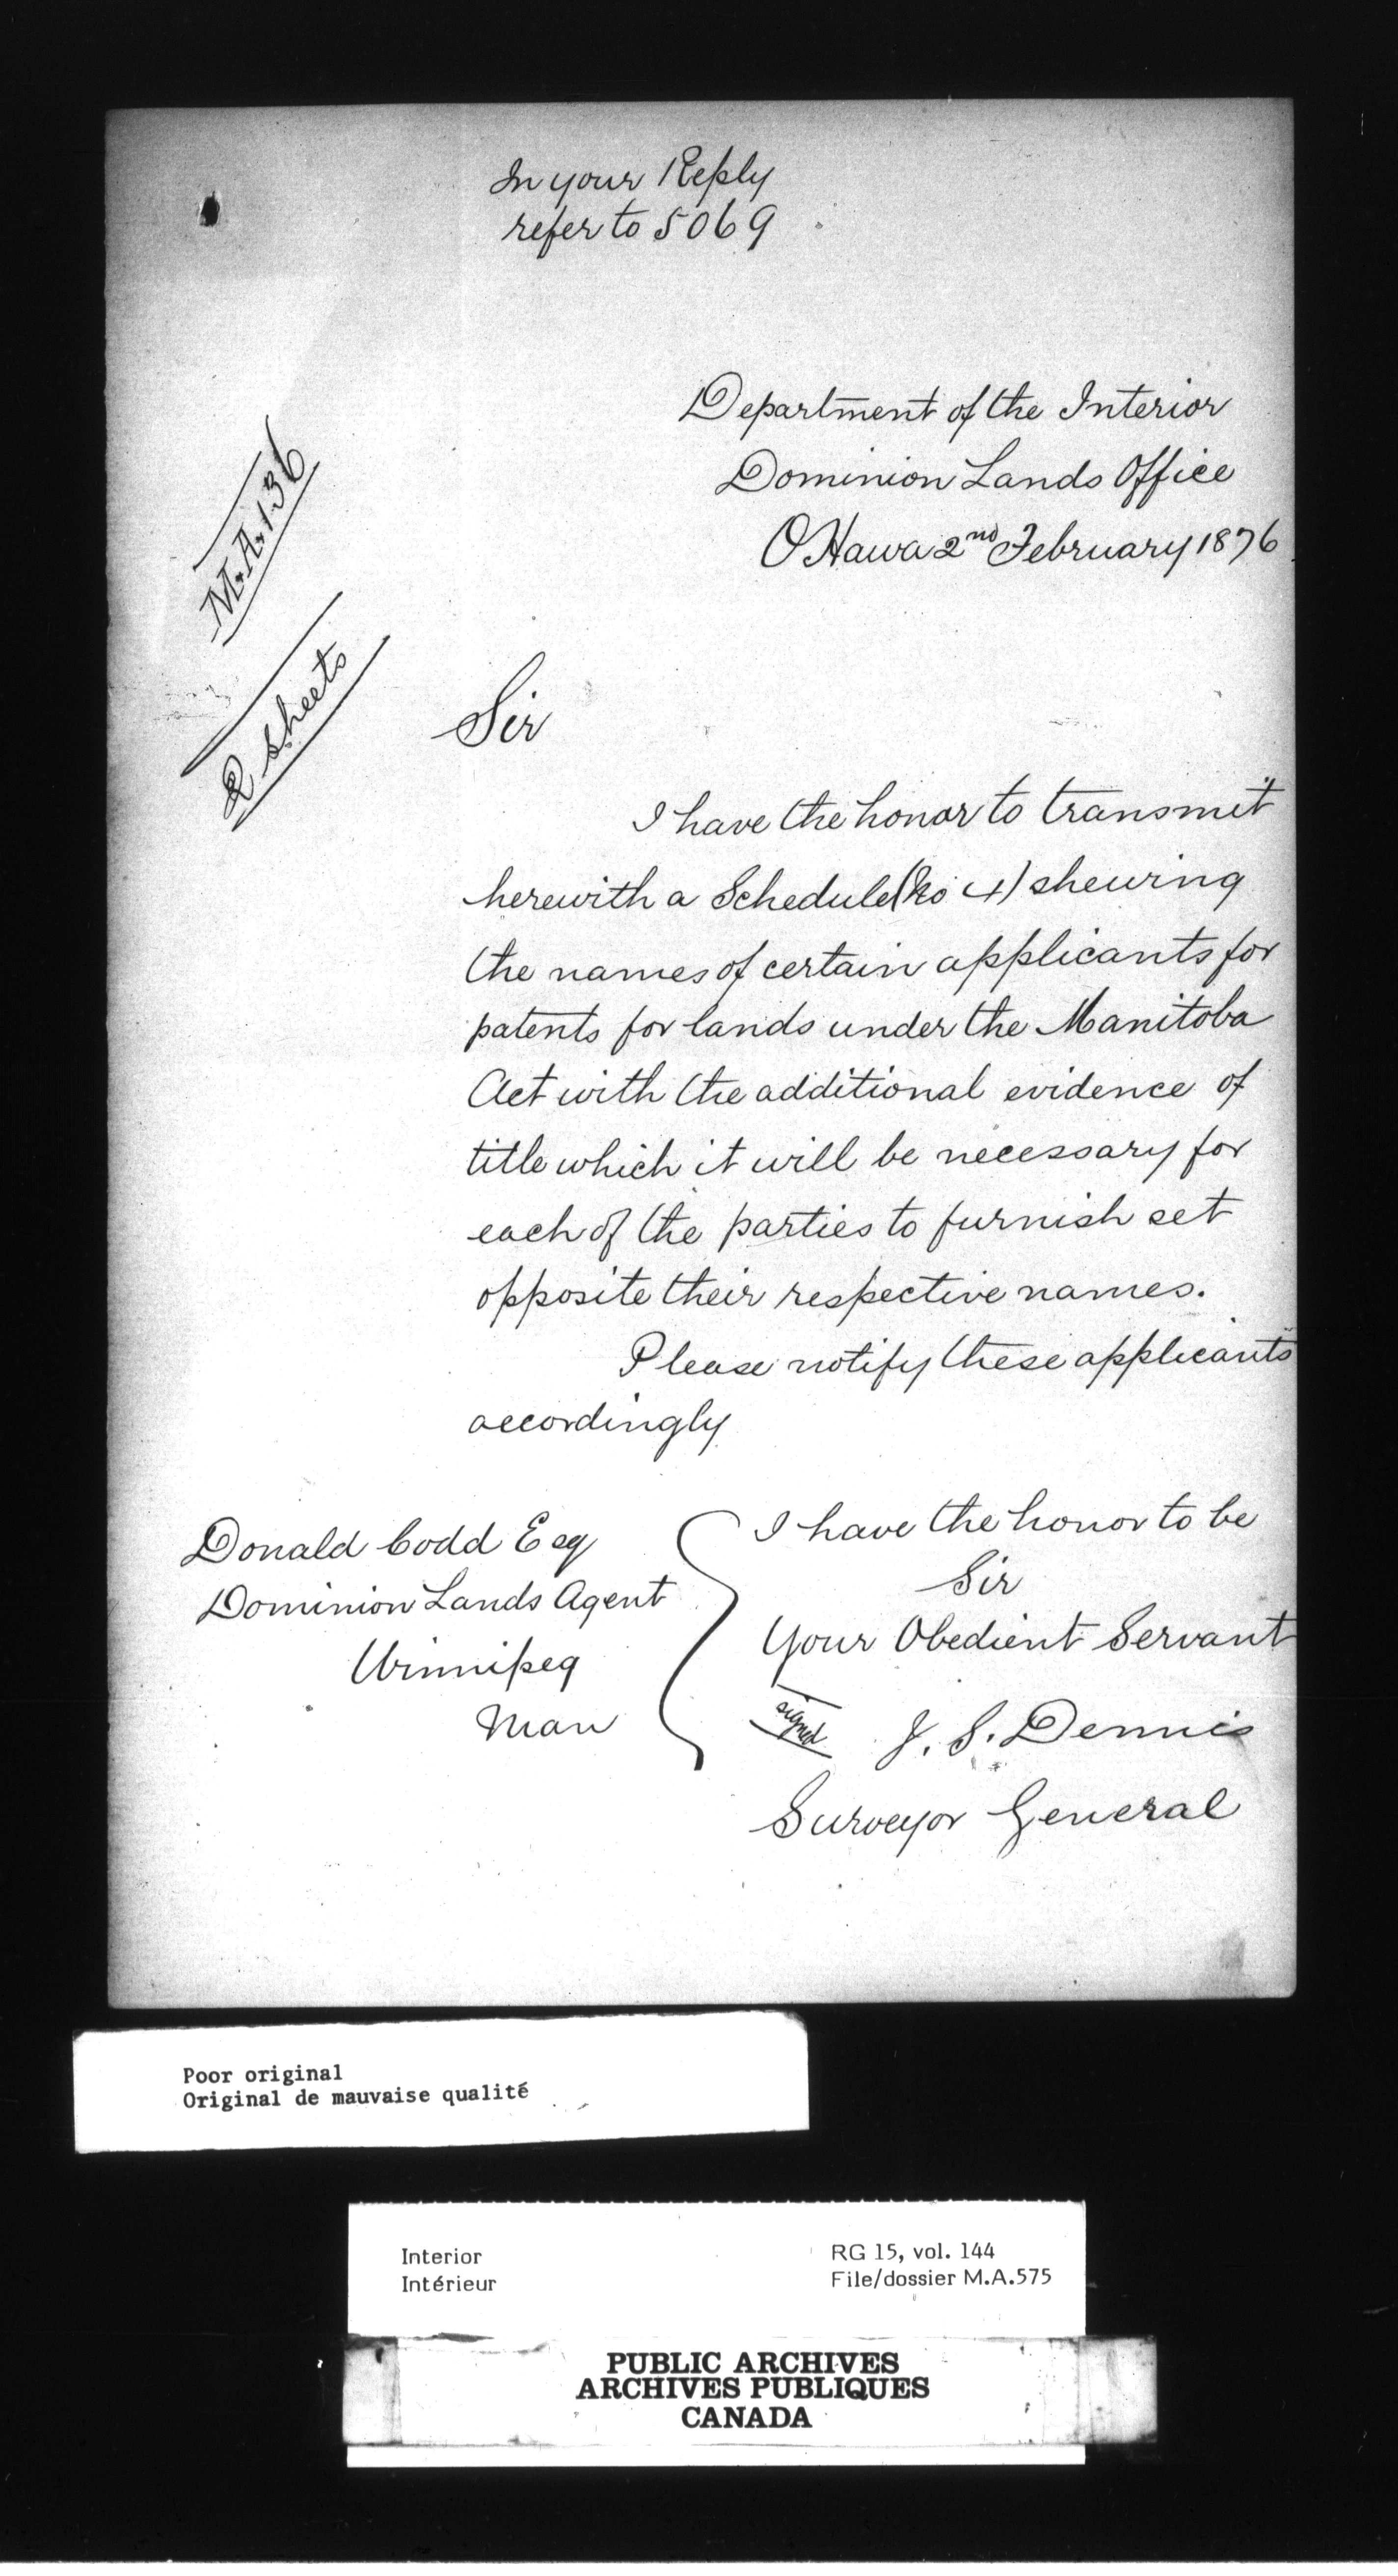 In your Reply
refer to 5069
Department of the Interior
Dominion Lands Office
Ottawa 2nd February 1876
M.A. 136
2 sheets
Sir
I have the honor to transmit
herewith a Schedule (No 4) shewing
the names of certain applicants for
patents for lands under the Manitoba
Act with the additional evidence of
title which it will be necessary for
each of the parties to furnish set
opposite their respective names.
Please notify these applicants
accordingly
I have the honor to be
Sir
Your Obedient Servant
signed J. S. Dennis
Surveyor General
Donald Codd Esq
Dominion Lands Agent
Winnipeg
Man
Poor original
Original de mauvaise qualité
Interior
Intérieur
RG 15, vol. 144
File/dossier M.A.575
PUBLIC ARCHIVES
ARCHIVES PUBLIQUES
CANADA